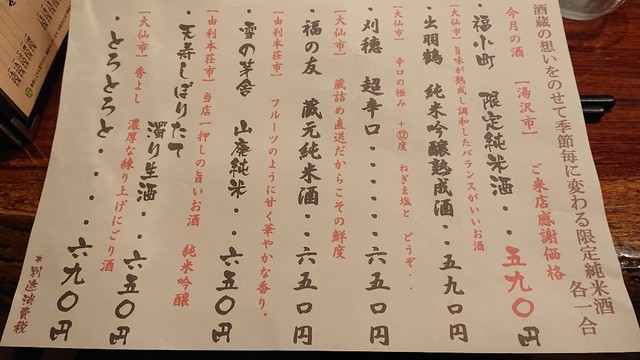 酒蔵の想いをのせて季節毎に変わる限定純米酒
各一合
今月の酒 【湯沢市】 ご来店感謝価格
・福小町 限定純米酒・・五九〇円
【大仙市】 旨味が熟成し調和したバランスがいいお酒
・出羽鶴 純米吟醸熟成酒・・五九〇円
【大仙市】 辛口の極み +⑫度 ねぎま塩と どうぞ・・
・刈穂 超辛口・・・・・・六五〇円
【大仙市】 蔵詰め直送だからこその鮮度
・福の友 蔵元純米酒・・六五〇円
【由利本荘市】 フルーツのように甘く華やかな香り。
・雪の茅舎 山廃純米・・六五〇円
【由利本荘市】 当店一押しの旨いお酒 純米吟醸
・天寿しぼりたて 濁り生酒・・六五〇円
【大仙市】 香よし 濃厚な練り上げにごり酒
・とろとろと・・・・・六九〇円
*別途消費税